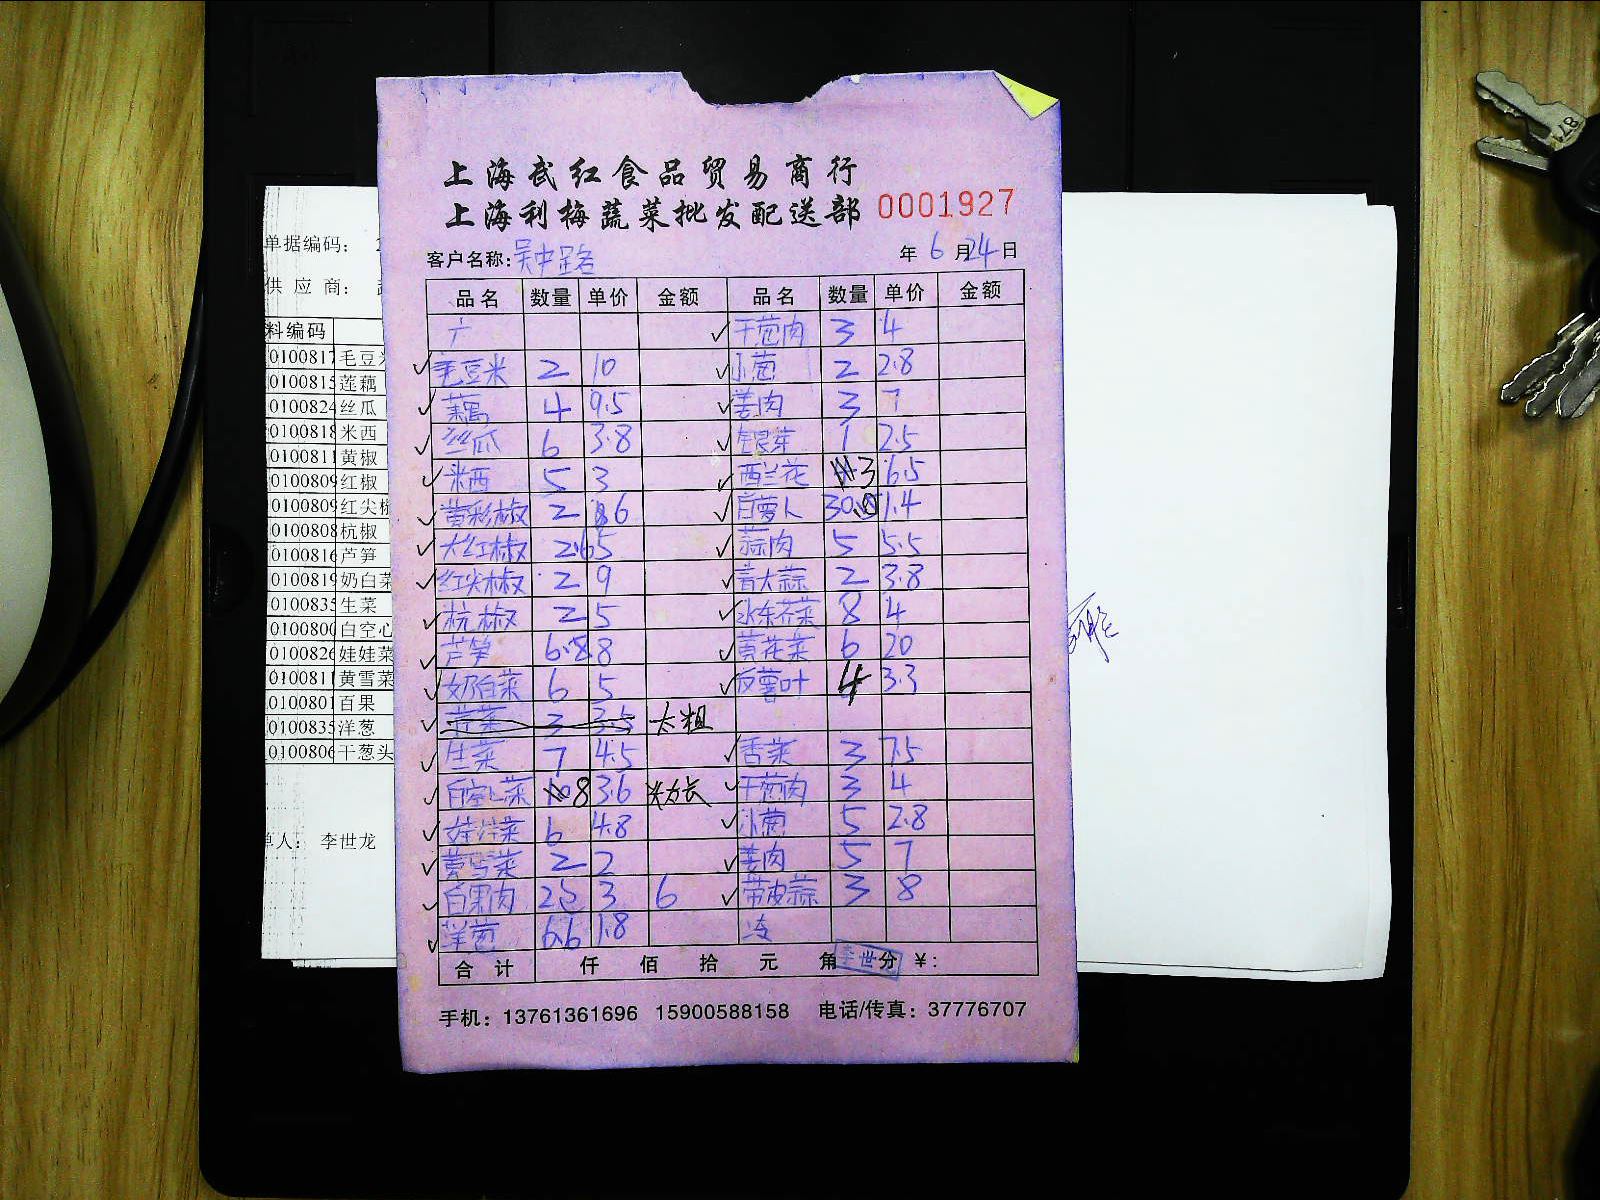 上海武红食品贸易商行
上海利梅蔬菜批发配送部 0001927
客户名称:吴中路 年 6 月 24 日
品名 数量 单价 金额 品名 数量 单价 金额
干葱肉 3 4
毛豆米 2 10 小葱 2 2.8
藕 4 9.5 姜肉 3 7
丝瓜 6 3.8 银芽 1 2.5
米西 5 3 西兰花 3 6.5
黄彩椒 2 6 白萝卜 30 1.4
大红椒 2.6 5 蒜肉 5 5.5
红尖椒 2 9 青大蒜 2 3.8
杭椒 2 5 水东芥菜 8 4
芦笋 6.8 8 黄花菜 6 20
奶白菜 6 5 反薯叶 4 3.3
3 3.5 太粗
生菜 7 4.5 香菜 3 7.5
白空心菜 8 3.6 太长 干葱肉 3 4
娃娃菜 6 4.8 小葱 5 2.8
黄雪菜 2 2 姜肉 5 7
白果肉 25 3 6 带皮蒜 3 8
洋葱 6.6 1.8 冷
合计 仟 佰 拾 元 角 分 ¥:
李世
手机: 13761361696 15900588158 电话/传真: 37776707
单据编码:
供应商:
料编码
0100817 毛豆米
0100815 莲藕
0100824 丝瓜
0100818 米西
010081 黄椒
0100809 红椒
0100809 红尖椒
0100808 杭椒
0100816 芦笋
0100819 奶白菜
0100835 生菜
010080 白空心
0100826 娃娃菜
010081 黄雪菜
010080 百果
0100835 洋葱
0100806 干葱头
单人: 李世龙
871